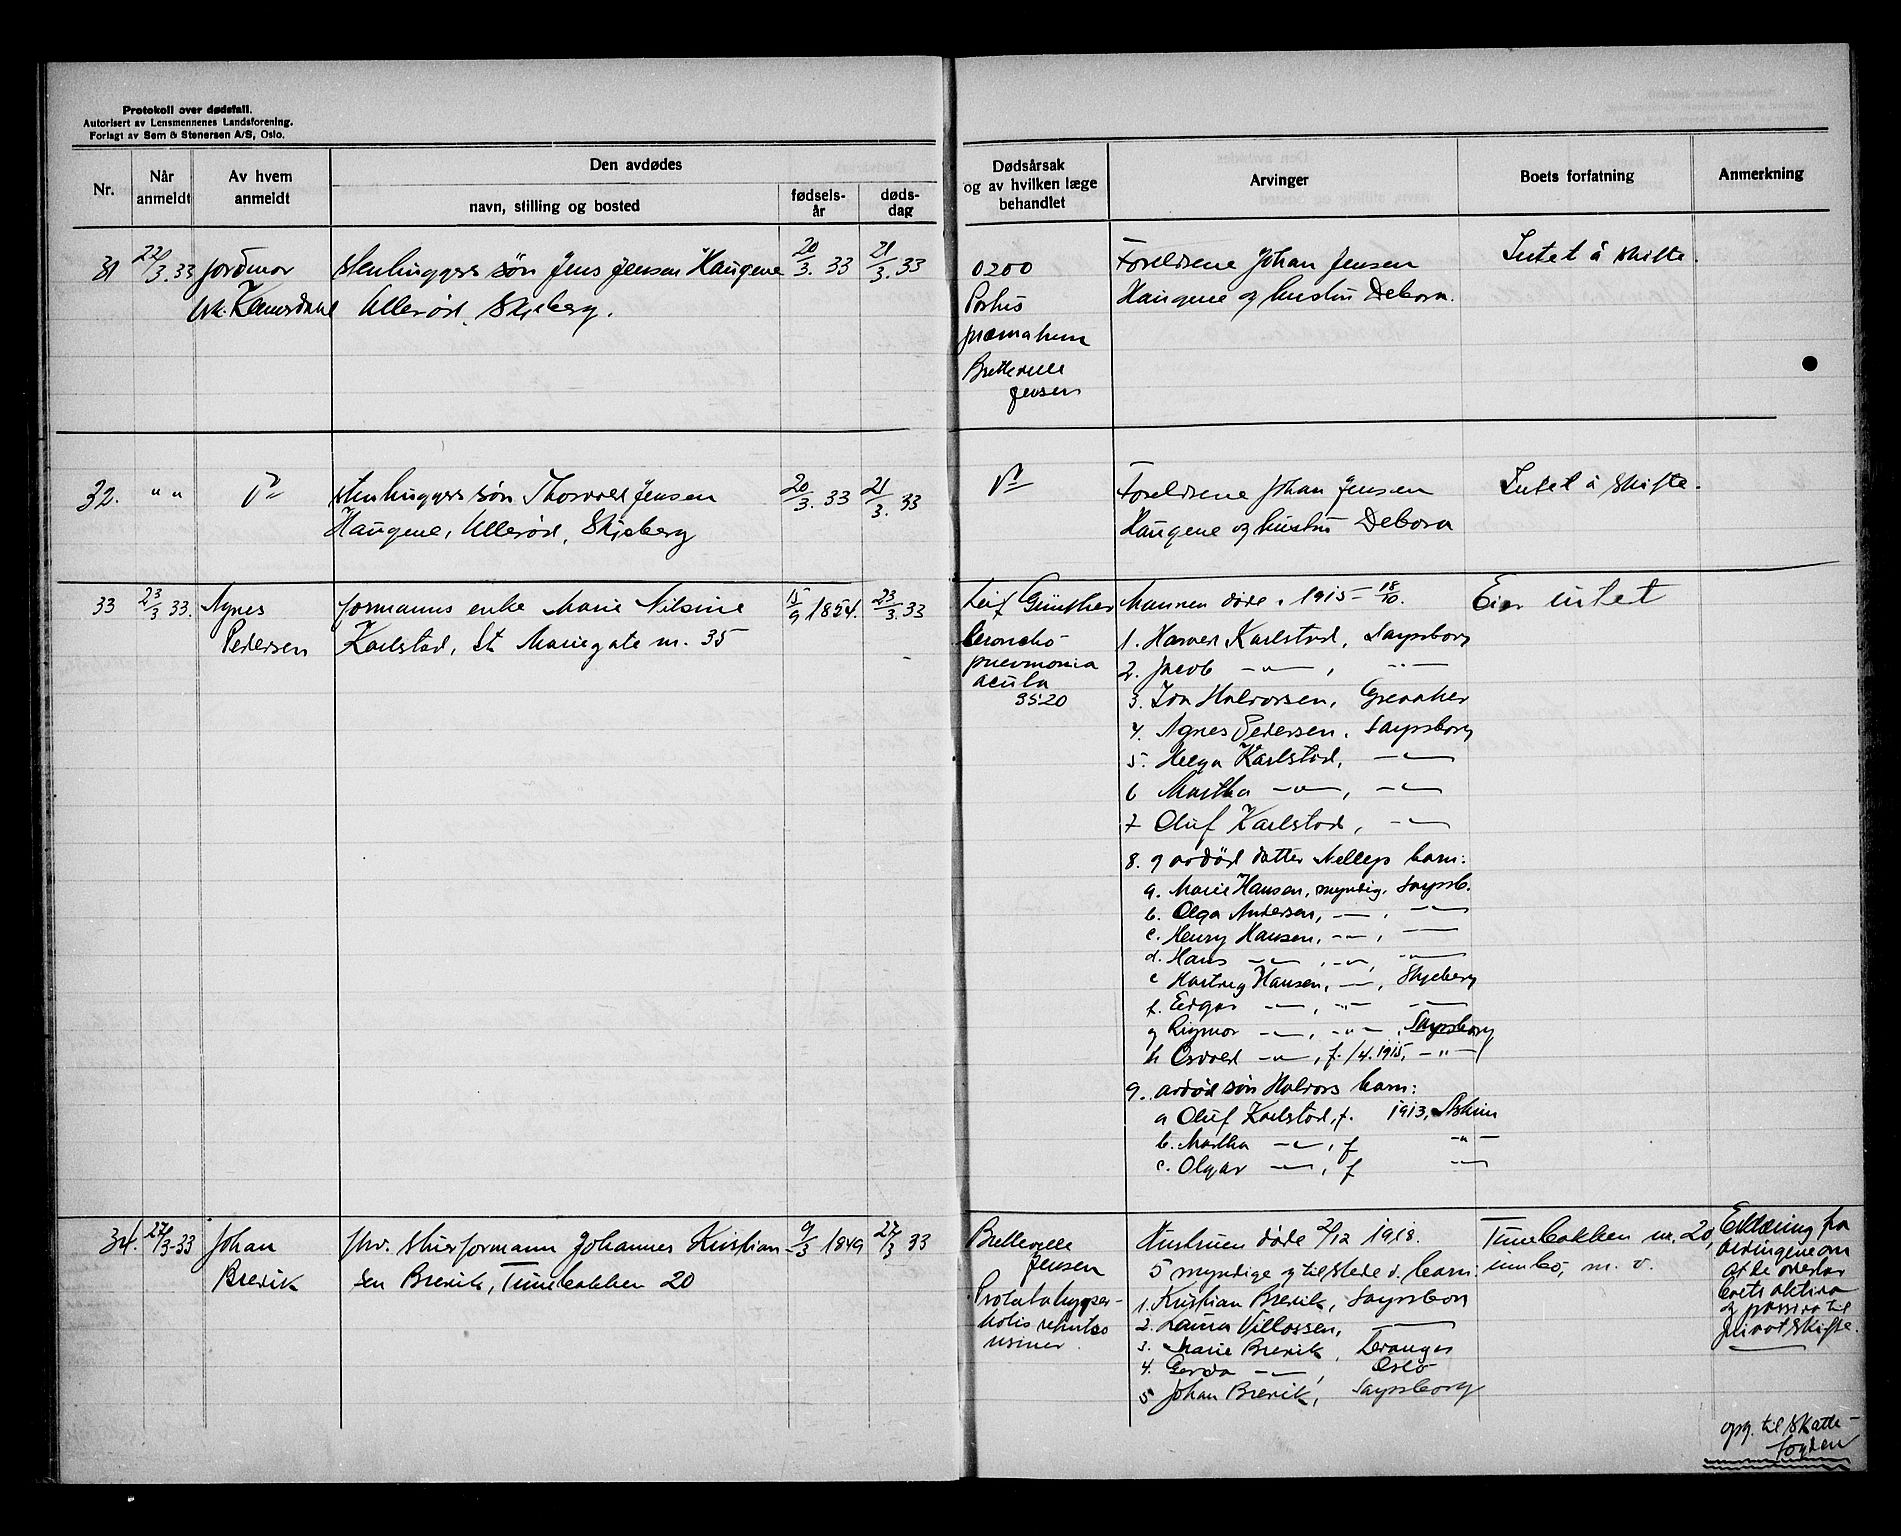 Protokoll over dødsfall.
Autorisert av Lensmennenes Landsforening.
Forlagt av Sem & Stenersen A/S, Oslo.
Nr.
Når anmeldt
Av hvem anmeldt
Den avdødes
navn, stilling og bosted
fødsels-år
døds-dag
Dødsårsak og av hvilken læge behandlet
Arvinger
Boets forfatning
Anmerkning
31 22/3.33 jordmor stenhuggers søn Jens Jensen Haugene 20/3.33 21/3.33
Ullerød, Skjeberg.
0200
Partus
præmaturus
Jensen
Foreldrene Johan Jensen
Haugene og hustru Debora.
Intet å skifte.
32. " " stenhuggers søn Thorvald Jensen 20/3.33 21/3.33
Haugene, Ullerød, Skjeberg
Foreldrene Johan Jensen
Haugene og hustru Debora
Intet å skifte.
33 23/3 33. Agnes formanns enke Marie Nilsine 15/9 1854. 23/3.33
Pedersen Karlstad, St. Mariegate nr. 35
Leif Günther
broncho-
pneumonia
acuta
3520
Mannen døde. 1915 – 18/10.
1. Harald Karlstad, Sarpsborg
2. Jacob –"– , –"–
3. Ida Halvorsen, Greaaker
4. Agnes Pedersen, Sarpsborg
5. Helga Karlstad, –"–
6 Martha –"–, –"–
7 Oluf Karlstad, –"–
8. og avdød datter Nellys barn:
a. Marie Hansen, myndig, Sarpsb.
b. Olga Andersen, –"– , –"–
c. Henry Hansen, –"– , –"–
d. Hans –"– , –"–, –"–
e Hartvig Hansen, –"–, Skjeberg
f. Edgar –"– , –"– –"–
g Rigmor –"– , –"– , Sarpsborg
h Osvald –"– , f. /4.1915, –"–
9. avdød søn Halvors barn:
a Oluf Karlstad, f. 1913, Askim
b. Martha –"– , f –"–
c. Olgar –"– , f –"–
Eier intet
34. 27/3-33 Johan fhv. stuerformann Johannes Kristian- 9/3 1849 27/3 33
Brevik sen Brevik, Tunebakken 20
Jensen
Hustruen døde 2/12 1918.
5 myndige og tilstede v. barn:
1. Kristian Brevik, Sarpsborg
2. Laura Villassen, –"–
3. Marie Brevik, Levanger
4. Gerda –"– , Oslo
5 Johan Brevik, Sarpsborg
Tunebakken nr. 20,
innbo, m. v.
Erklæring fra
arvingene om
at de overtar
boets aktiva
og passiva til
privat skifte.
opg. til skatte-
fogden